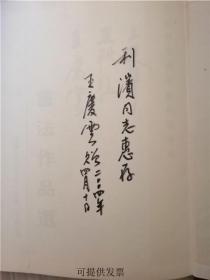 利濱同志惠存
王慶雲
二〇〇四年
四月十日
可提供发票